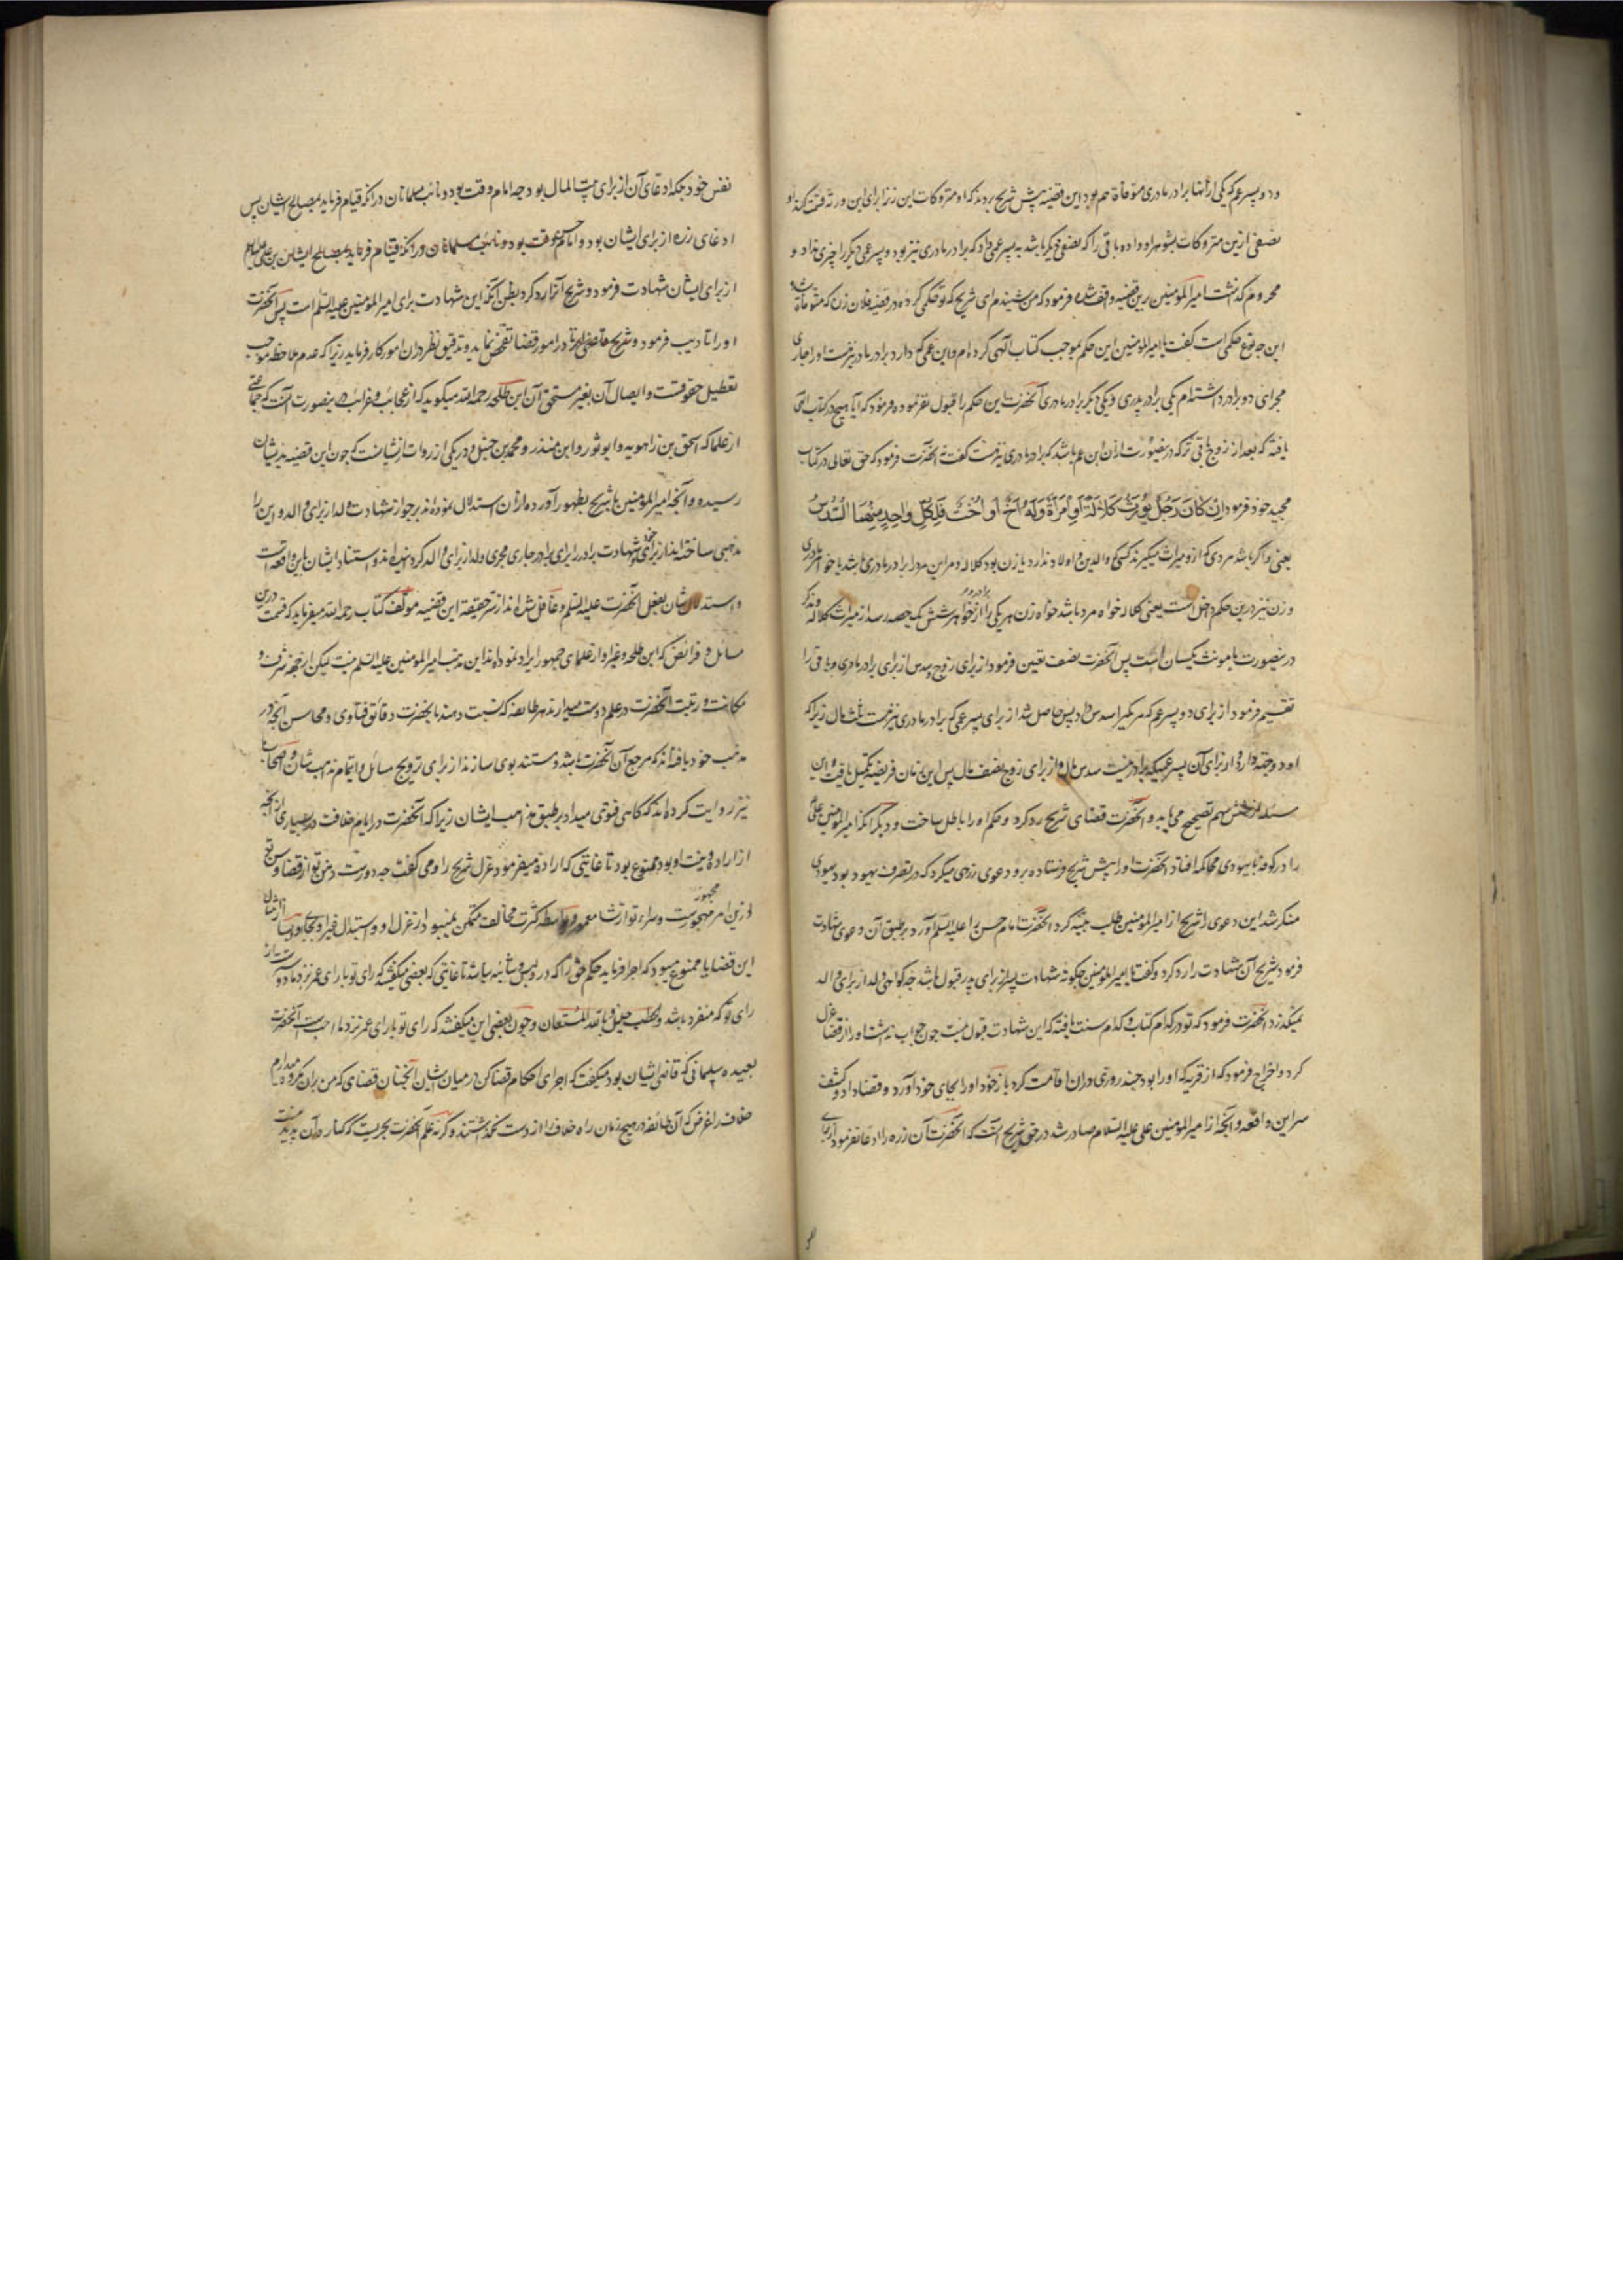 و دو پسر عم که یکی از آنها برادر مادری متوفاة هم بود این قضیه پیش شریح بردند که او متروکات این زن را برای این ورثه قسمت کند او
نصفی ازین متروکات بشوهر او داده باقی را که نصفی دیگر باشد به پسر عمی داد که برادر مادری نیز بود و پسر عمی دیگر را چیزی نداد و
محروم گذشت امیر المؤمنین برین قضیه واقف شده فرمود که من شنیدم ای شریح که تو حکمی کرده در قضیه فلان زن که متوفاة
این چه نوع حکمی است گفت یا امیر المؤمنین این حکم بموجب کتاب الهی کرده ام و این عمی که دارد برادر مادر نیز هست او را جاری
مجرای دو برادر داشته ام یکی برادر پدری و یکی دیگر برادر مادری آنحضرت این حکم را قبول نفرموده و فرمود که آیا هیچ در کتاب الهی
یافته که بعد از زوج باقی ترکه درینصورت از ان ابن عم باشد که برادر مادری نیز هست گفت نه آنحضرت فرمود که حق تعالی در کتاب
مجید خود فرمود اِنْ كَانَ رَجُلٌ يُورَثُ كَلَالَةً أَوِ امْرَأَةٌ وَلَهُ أَخٌ أَوْ أُخْتٌ فَلِكُلِّ وَاحِدٍ مِنْهُمَا السُّدُسُ
یعنی و اگر باشد مردی که ازو میراث میگیرند که والدین و اولاد ندارد یا زن بود کلاله و مر این مرد را برادر مادری باشد یا خواهر مادری
و زن نیز درین حکم داخل است یعنی کلاله خواه مرد باشد خواه زن هر یکی را از برادر و خواهر شش یک حصه رسد از میراث کلاله و مذکر
درینصورت با مونث یکسان است پس آنحضرت نصف تعین فرمود از برای زوج و سدس از برای برادر مادری و باقی را
تقسیم فرمود از برای دو پسر عم که هر یکیرا سدس داد پس حاصل شد از برای پسر عمی که برادر مادری نیز هست ثلث مال زیرا که
او دو جهة دارد و از برای آن پسر عمی که برادر نیست سدس مال و از برای زوج نصف مال پس این زمان فریضه تکمیل یافت و این
مسئله از شش سهم تصحیح می یابد و آنحضرت قضای شریح رد کرد و حکم او را باطل ساخت و دیگر آنکه امیر المؤمنین علی
را در کوفه با یهودی محاکمه افتاد آنحضرت او را پیش شریح فرستاده برو دعوی زرهی میکرد که در تصرف یهود بود یهودی
منکر شد این دعوی را شریح از امیر المؤمنین طلب بینه کرد آنحضرت امام حسن را علیه السلام آورد بر طبق آن دعوی شهادت
فرمود شریح آن شهادت را رد کرد و گفت یا امیر المؤمنین چگونه شهادت پسر از برای پدر قبول باشد چه گواهی ولد از برای والد
نمیگذرد آنحضرت فرمود که تو در کدام کتاب و کدام سنت یافته که این شهادت قبول نیست چون جواب نداشت او را از قضا عزل
کرد و اخراج فرمود که از قریه که او را بود چند روزی در ان اقامت کرد باز خود او را بجای خود آورد و قضا داد و کشف
سر این واقعه و آنچه از امیر المؤمنین علی علیه السلام صادر شد در حق شریح آنست که آنحضرت آن زره را ادعا نفرمود از برای
نفس خود بلکه ادعای آن از برای بیت المال بود چه امام وقت بود و نائب مسلمانان در آنکه قیام فرماید بمصالح ایشان پس
ادعای زره از برای ایشان بود و امام حسن بن علی علیهما السلام
از برای ایشان شهادت فرمود و شریح آنرا رد کرد بظن آنکه این شهادت برای امیر المؤمنین علیه السلام است پس آنحضرت
او را تادیب فرمود و شریح تا در امور قضا تفحص نماید و تدقیق نظر در ان امور کار فرماید زیرا که عدم ملاحظه موجب
تعطیل حقوقست و ایصال آن بغیر مستحق آن ابن طلحه رحمه الله میگوید که از عجایب و غرائب درینصورت آنست که جماعتی
از علما که اسحق بن راهویه و ابو ثور و ابن منذر و محمد بن حنبل در یکی از روایات ازیشانست که چون این قضیه بدیشان
رسیده و آنچه امیر المؤمنین با شریح بظهور آورده از ان استدلال نموده اند بر جواز شهادت ولد از برای والد و این را
مذهبی ساخته اند از برای خود و شهادت برادر را برای برادر جاری مجری ولد از برای والد کردانیده اند و استناد ایشان باین واقعه است
و استدلال شان بفعل آنحضرت علیه السلم و غافل شده اند از سر حقیقه این قضیه مؤلف کتاب رحمه الله میفرماید که قسمت درین
مسائل و فرائض که ابن طلحه و غیر او از علمای جمهور ایراد نموده اند این مذهب امیر المؤمنین علیه السلم نیست لیکن از جهة شرف و
مکانت و رتبت آنحضرت در علم دوست میدارند هر طایفه که نسبت دهند بآنحضرت دقائق فتاوی و محاسن آنچه در
مذهب خود یافته اند که مرجع آن آنحضرت باشد و مستند بوی سازند از برای ترویج مسائل و اتمام مذهب شان و اصحاب
نیز روایت کرده اند که گاهی فتوی میداد بر طبق مذاهب ایشان زیرا که آنحضرت در ایام خلافت در بسیاری از آنچه
از اراده و نیت او بود ممنوع بود تا غایتی که اراده میفرمود عزل شریح را و می گفت چه دورست ذهن تو از قضا و سن تو
این قضایا ممنوع میبود که اجرا فرماید حکم حق را که در و لبس و شائبه نباشد تا غایتی که بعضی میگفتند که رای تو با رای عمر نزد ما دوستر است از
رای تو که منفرد باشد و بالله المستعان و چون بعضی این میگفتند که رای تو با رای عمر نزد ما احب است آنحضرت
بعبیده سلمانی که قاضی ایشان بود میگفت که اجرای احکام قضا کن در میان ایشان آنچنان قضای که من بران مکروه میدارم
خلاف را غرض که آن طائفه در هیچ زمان راه خلاف را از دست نمیگذاشتند و گرنه علم آنحضرت بحریست که کنار آن پدید نیست